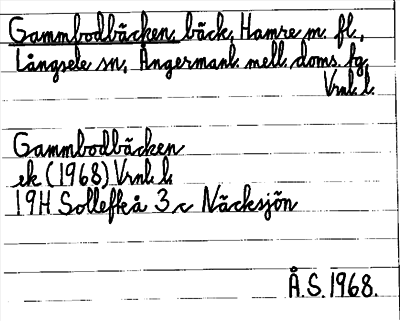 Gammbodbäcken, bäck, Hamre m. fl.,
Långsele sn, Ångermanl. mell. doms. tg,
Vrnl. l.
Gammbodbäcken
ek (1968) Vrnl. l.
19H Sollefteå 3 c Näcksjön
Å.S. 1968.